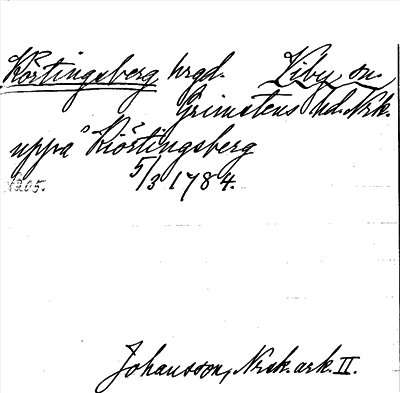 Körtingsberg hrgd. Viby sn.
Grimstens hd. Nrk.
uppå Kiörtingsberg
5/3 1784.
1205.
Johansson, Nrsk. ark. II.